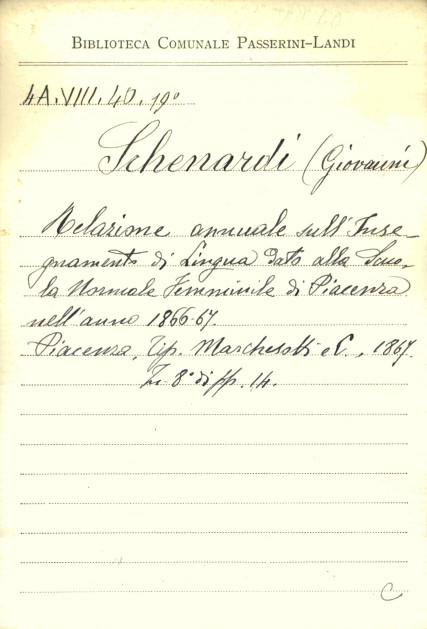 BIBLIOTECA COMUNALE PASSERINI-LANDI
4A.VIII.40.19º
Schenardi (Giovanni)
Relazione annuale sull'Inse-
gnamento di Lingua dato alla Scuo-
la Normale Femminile di Piacenza
nell'anno 1866-67.
Piacenza, Tip. Marchesotti e C., 1867.
In 8º di pp. 14.
C